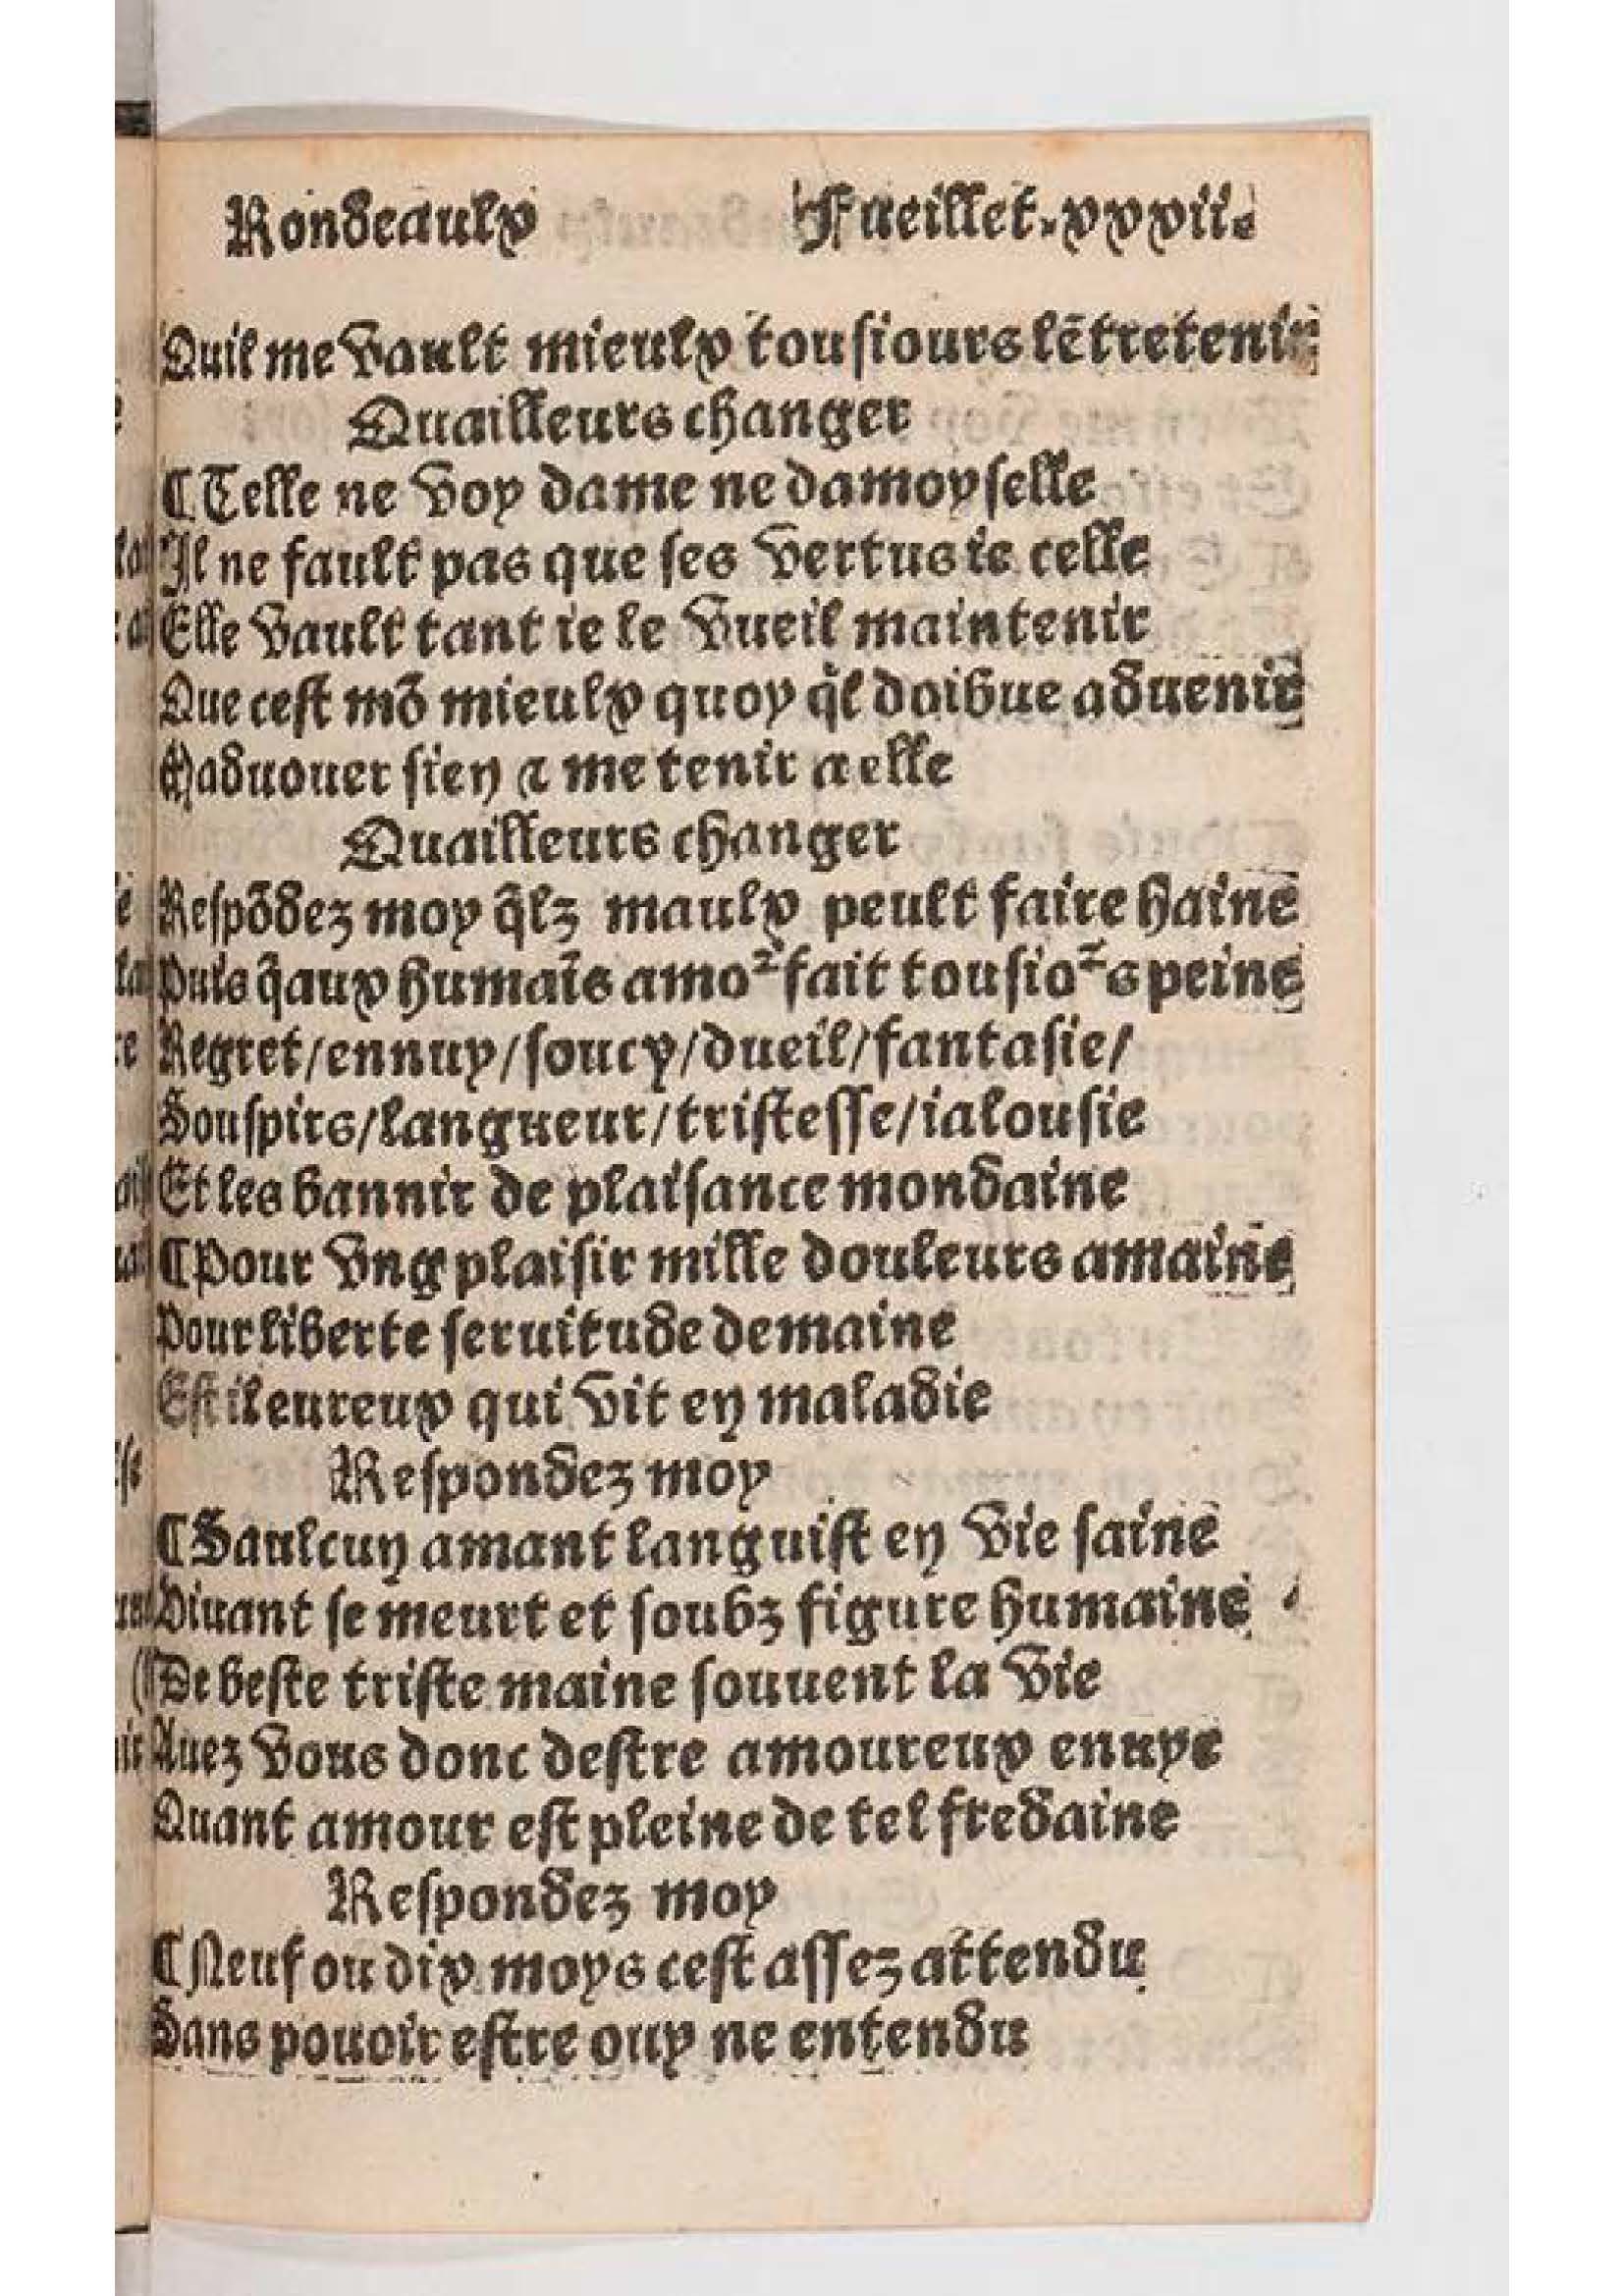 Rondeaulx Fueillet.xxxii.
Quil me vault mieulx tousiours lẽtretenir
Quailleurs changer
⁋Telle ne voy dame ne damoyselle
Il ne fault pas que ses vertus ie celle
Elle vault tant ie le vueil maintenir
Que cest mõ mieulx quoy q̃l doibue aduenir
Maduouer sien ⁊ me tenir a elle
Quailleurs changer
Respõdez moy q̃lz maulx peult faire haine
Puis q̃aux humaĩs amoᷣ fait tousioᷣs peine
Regret/ennuy/soucy/dueil/fantasie/
Souspirs/langueur/tristesse/ialousie
Et les bannir de plaisance mondaine
⁋Pour vng plaisir mille douleurs amaine
Pour liberte seruitude demaine
Est il eureux qui vit en maladie
Respondez moy
⁋Saulcun amant languist en vie saine
Viuant se meurt et soubz figure humaine
De beste triste maine souuent la vie
Auez vous donc destre amoureux enuye
Quant amour est pleine de tel fredaine
Respondez moy
⁋Neuf ou dix moys cest assez attendu
Sans pouoir estre ouy ne entendu